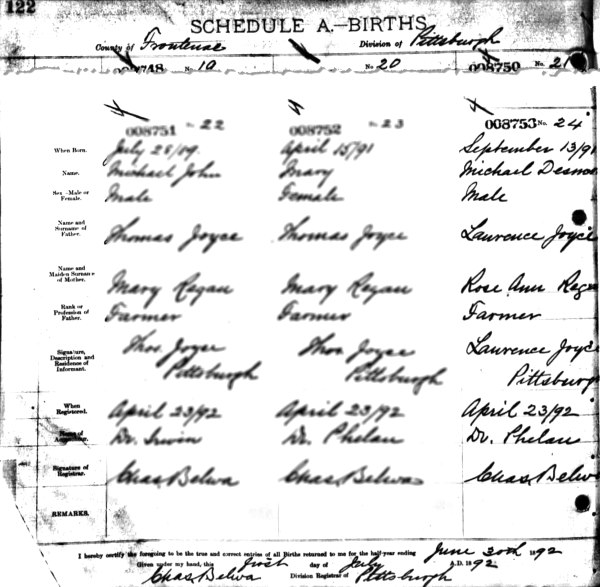 122
SCHEDULE A.—BIRTHS
County of Frontenac Division of Pittsburgh
No 19 No 20 008750 No. 21
008751 - 22 008752 - 23 008753 No. 24
When Born. July 28/89. April 15/91 September 13/91
Name. Michael John Mary Michael
Sex—Male or Female. Male Female Male
Name and Surname of Father. Thomas Joyce Thomas Joyce Laurence Joyce
Name and Maiden Surname of Mother. Mary Regan Mary Regan Rose Ann
Rank or Profession of Father. Farmer Farmer Farmer
Signature, Description and Residence of Informant. Thos. Joyce Thos. Joyce Laurence Joyce
Pittsburgh Pittsburgh Pittsburg
When Registered. April 23/92 April 23/92 April 23/92
Name of Accoucheur. Dr. Irwin Dr. Phelan Dr. Phelan
Signature of Registrar. Chas Belwa Chas Belwa Chas Belwa
REMARKS.
I hereby certify the foregoing to be the true and correct entries of all Births returned to me for the half-year ending June 30th 1892
Given under my hand, this first day of July A.D. 1892
Chas Belwa Division Registrar of Pittsburgh